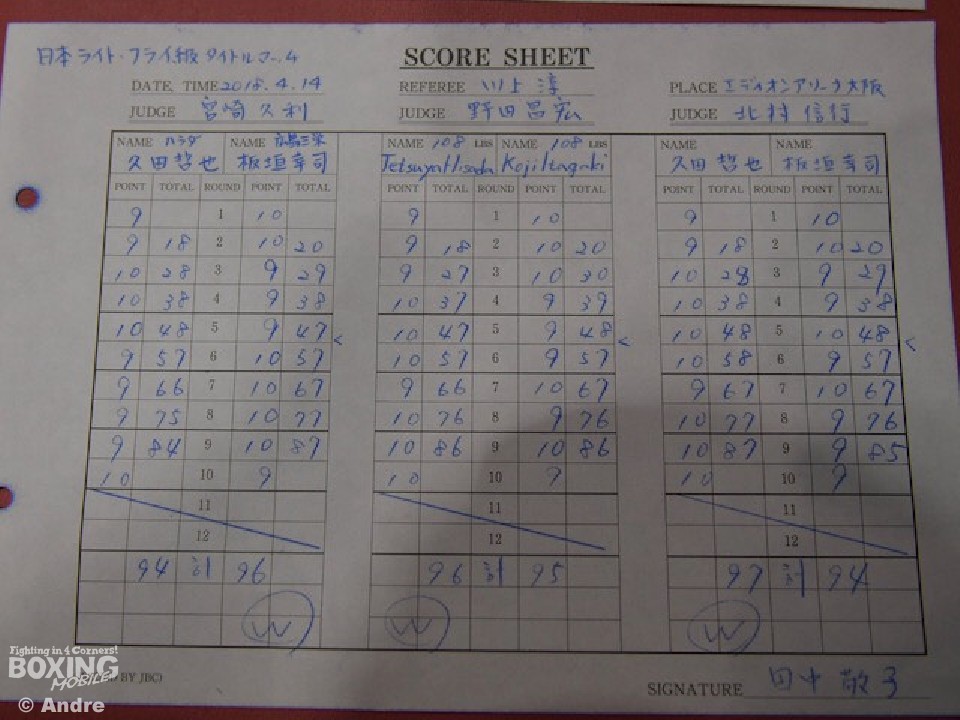 日本ライト・フライ級タイトルマッチ
SCORE SHEET
DATE, TIME 2018.4.14 REFEREE 川上 淳 PLACE エディオンアリーナ大阪
JUDGE 宮崎久利 JUDGE 野田昌宏 JUDGE 北村信行
NAME ハラダ NAME NAME 108 LBS NAME 108 LBS NAME NAME
久田哲也 板垣幸司 Tetsuya Hisada Koji Itagaki 久田哲也 板垣幸司
POINT TOTAL ROUND POINT TOTAL POINT TOTAL ROUND POINT TOTAL POINT TOTAL ROUND POINT TOTAL
9 1 10 9 1 10 9 1 10
9 18 2 10 20 9 18 2 10 20 9 18 2 10 20
10 28 3 9 29 9 27 3 10 30 10 28 3 9 29
10 38 4 9 38 10 37 4 9 39 10 38 4 9 38
10 48 5 9 47 < 10 47 5 9 48 < 10 48 5 10 48 <
9 57 6 10 57 10 57 6 9 57 10 58 6 9 57
9 66 7 10 67 9 66 7 10 67 9 67 7 10 67
9 75 8 10 77 10 76 8 9 76 10 77 8 9 76
9 84 9 10 87 10 86 9 10 86 10 87 9 9 85
10 10 9 10 10 9 10 10 9
11 11 11
12 12 12
94 計 96 96 計 95 97 計 94
W W W
Fighting in 4 Corners!
BOXING
MOBILE
D BY JBC)
SIGNATURE 田中敬子
© Andre